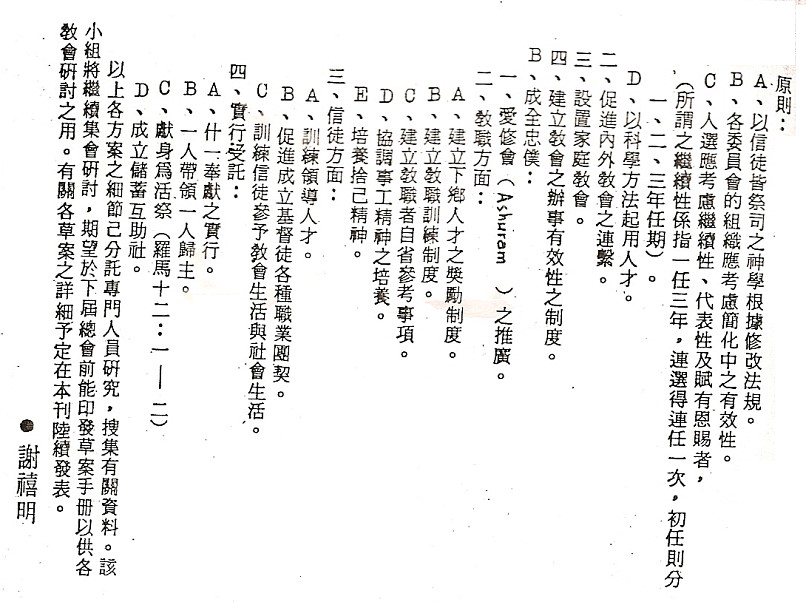 原則：
A、以信徒皆祭司之神學根據修改法規。
B、各委員會的組織應考慮簡化中之有效性。
C、人選應考慮繼續性、代表性及賦有恩賜者，
（所謂之繼續性係指一任三年，連選得連任一次，初任則分
一、二、三年任期）。
D、以科學方法起用人才。
二、促進內外教會之連繫。
三、設置家庭教會。
四、建立教會之辦事有效性之制度。
B、成全忠僕：
一、愛修會（Ashuram　）之推廣。
二、教職方面：
A、建立下鄉人才之獎勵制度。
B、建立教職訓練制度。
C、建立教職者自省參考事項。
D、協調事工精神之培養。
E、培養捨己精神。
三、信徒方面：
A、訓練領導人才。
B、促進成立基督徒各種職業團契。
C、訓練信徒參予教會生活與社會生活。
四、實行受託：
A、什一奉獻之實行。
B、一人帶領一人歸主。
C、獻身爲活祭（羅馬十二：一—二）
D、成立儲蓄互助社。
以上各方案之細節已分託專門人員研究，搜集有關資料。該
小組將繼續集會研討，期望於下屆總會前能印發草案手冊以供各
教會研討之用。有關各草案之詳細予定在本刊陸續發表。
●謝禧明